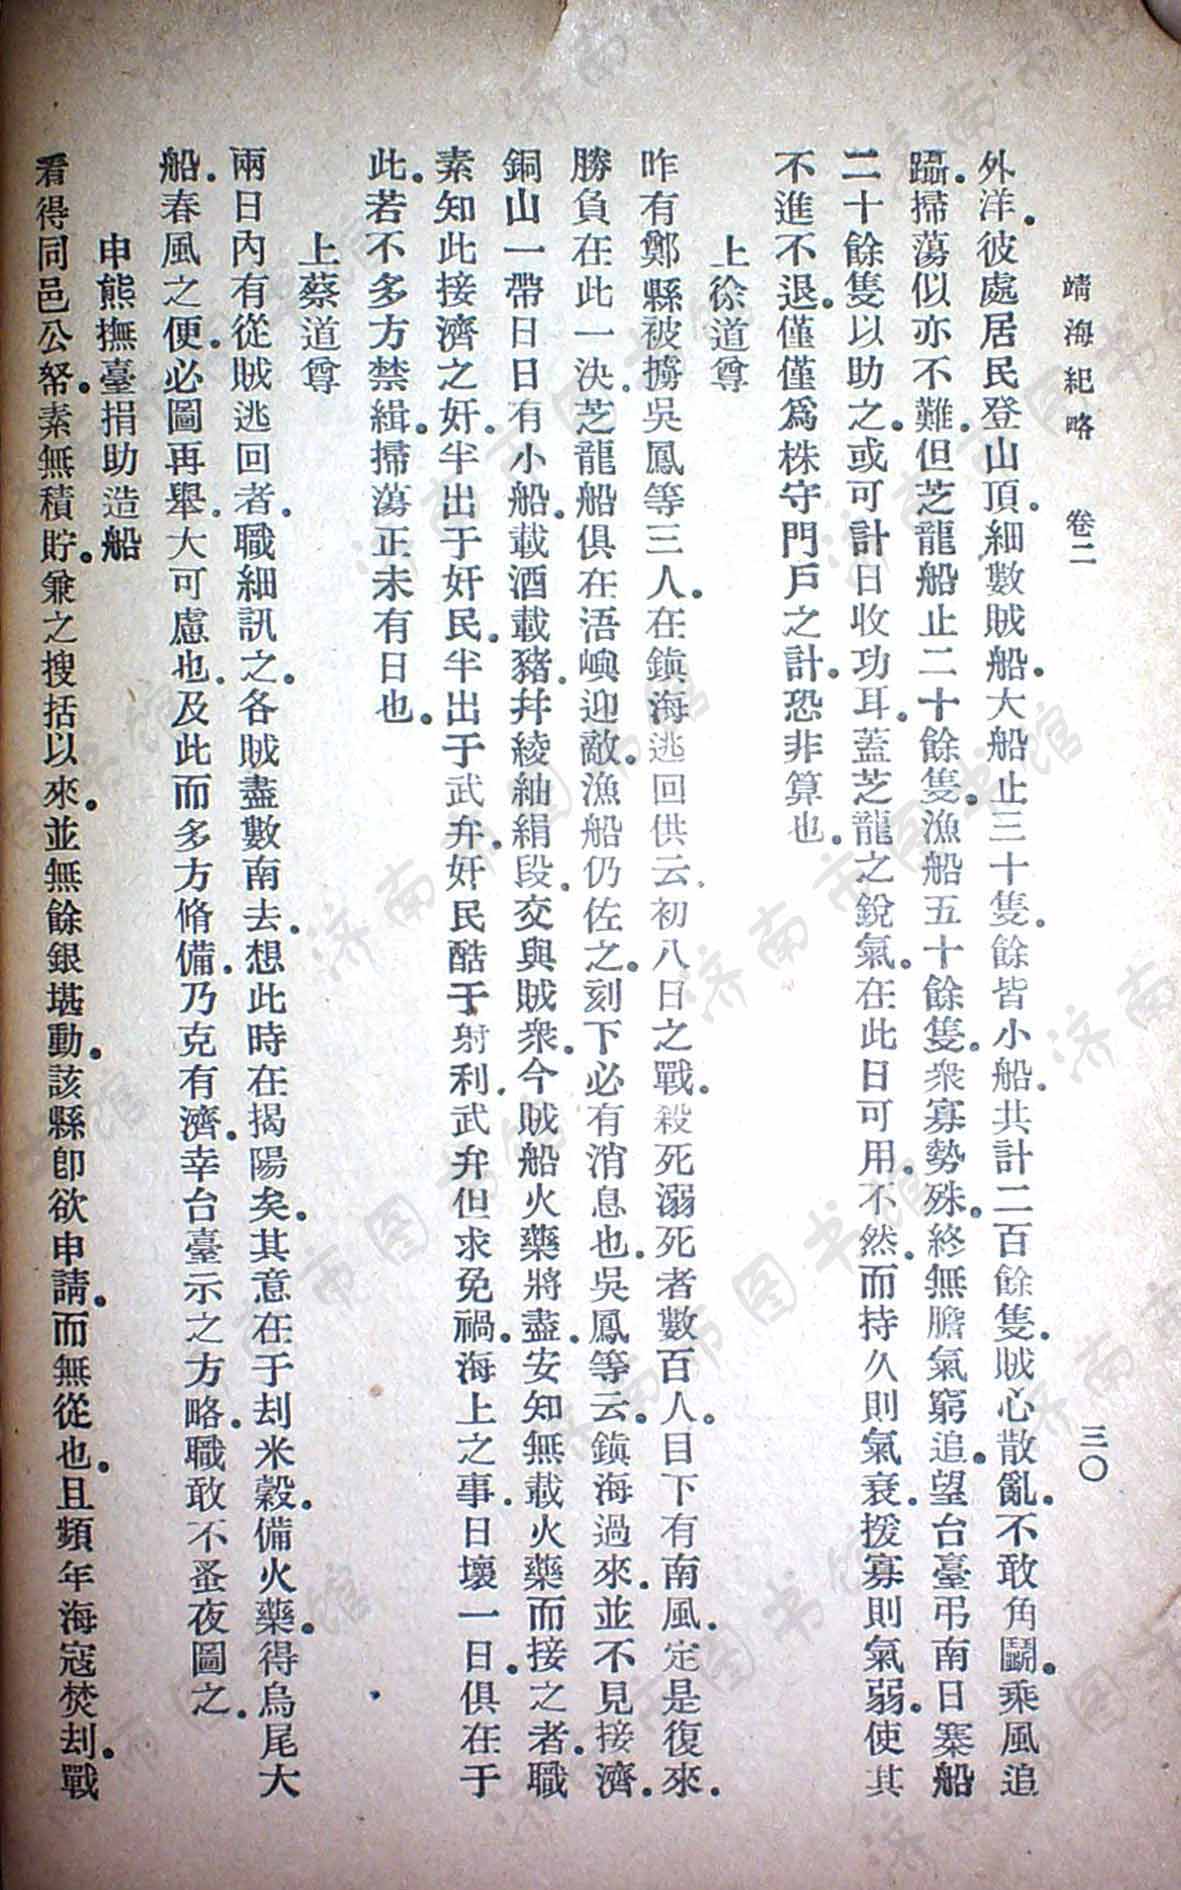 靖海紀略　卷二　三〇
外洋。彼處居民登山頂。細數賊船。大船止三十隻。餘皆小船。共計二百餘隻。賊心散亂。不敢角鬬。乘風追
躡。掃蕩似亦不難。但芝龍船止二十餘隻。漁船五十餘隻。衆寡勢殊。終無膽氣窮追。望台臺弔南日寨船
二十餘隻以助之。或可計日收功耳。蓋芝龍之銳氣。在此日可用。不然。而持久則氣衰。援寡則氣弱。使其
不進不退。僅僅爲株守門戶之計。恐非算也。
上徐道尊
昨有鄭縣被擄吳鳳等三人。在鎮海逃回供云。初八日之戰。殺死溺死者數百人。目下有南風。定是復來。
勝負在此一決。芝龍船俱在浯嶼迎敵。漁船仍佐之。刻下必有消息也。吳鳳等云。鎮海過來。並不見接濟。
銅山一帶日日有小船。載酒載豬。幷綾紬絹段。交與賊衆。今賊船火藥將盡。安知無載火藥而接之者。職
素知此接濟之奸。半出于奸民。半出于武弁。奸民酷于射利。武弁但求免禍。海上之事。日壞一日。俱在于
此。若不多方禁緝。掃蕩正未有日也。
上蔡道尊
兩日內有從賊逃回者。職細訊之。各賊盡數南去。想此時在揭陽矣。其意在于刦米穀。備火藥。得烏尾大
船。春風之便。必圖再舉。大可慮也。及此而多方脩備。乃克有濟。幸台臺示之方略。職敢不蚤夜圖之。
申熊撫臺捐助造船
看得同邑公帑。素無積貯。兼之搜括以來。並無餘銀堪動。該縣卽欲申請。而無從也。且頻年海寇焚刦。戰